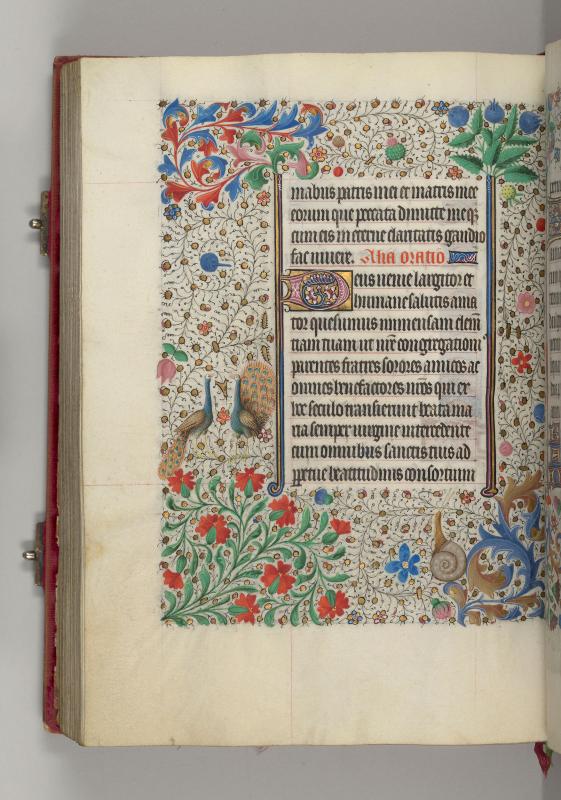 mabus patris mei et matris mee
eorum que peccata dimitte meq;
cum eis in eterne claritatis gaudio
fac vivere. Alia oratio
Deus venie largitor et
humane salutis ama
tor quesumus immensam clem
tiam tuam ut nre congregationi
parentes fratres sorores amicos ac
omnes benefactores nros qui ex
hoc seculo transierunt beata ma
ria semper virgine intercedente
cum omnibus sanctis tuis ad
ppetue beatitudinis consortium